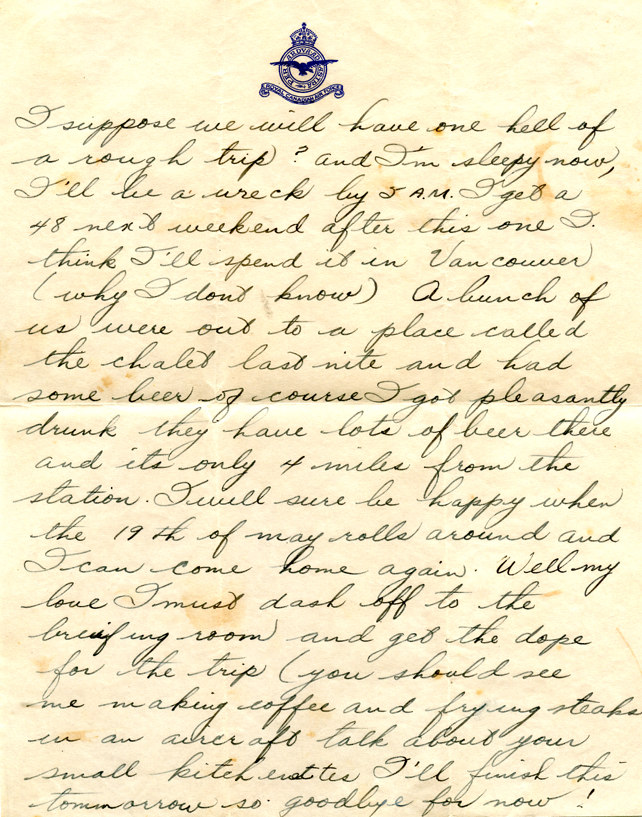 ROYAL CANADIAN AIR FORCE
I suppose we will have one hell of
a rough trip? and I'm sleepy now,
I'll be a wreck by 5 A.M. I get a
48 next weekend after this one I.
think I'll spend it in Vancouver
(why I dont know) A bunch of
us were out to a place called
the chalet last nite and had
some beer of course I got pleasantly
drunk they have lots of beer there
and its only 4 miles from the
station. I will sure be happy when
the 19th of may rolls around and
I can come home again. Well my
love I must dash off to the
breifing room and get the dope
for the trip (you should see
me making coffee and frying steaks
in an aircraft talk about your
small kitchenettes I'll finish this
tommarrow so goodbye for now!